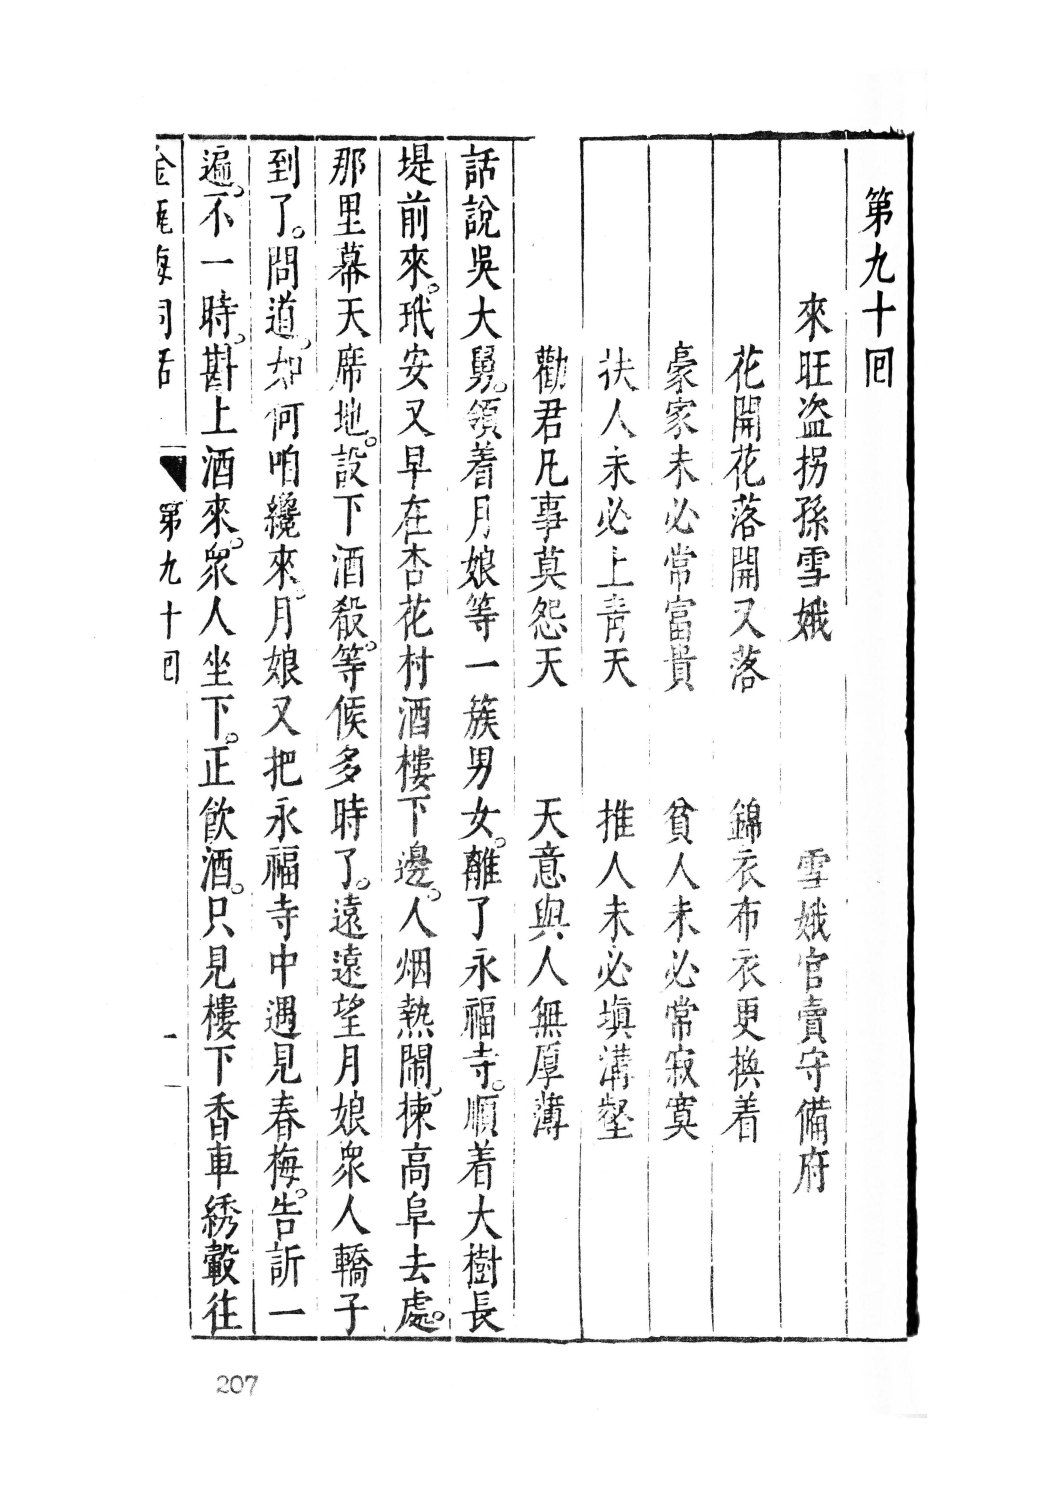 第九十回
來旺盜拐孫雪娥　雪娥官賣守備府
花開花落開又落　錦衣布衣更換着
豪家未必常富貴　貧人未必常寂寞
扶人未必上青天　推人未必塡溝壑
勸君凡事莫怨天　天意與人無厚薄
話說吳大舅。領着月娘等一簇男女。離了永福寺。順着大樹長
堤前來。玳安又早在杏花村酒樓下邊。人烟熱閙。揀高阜去處。
那里幕天席地。設下酒殽。等候多時了。遠遠望月娘衆人轎子
到了。問道。如何咱纔來。月娘又把永福寺中遇見春梅。告訴一
遍。不一時。斟上酒來。衆人坐下。正飲酒。只見樓下香車綉轂往
金瓶梅詞話　第九十回　一
207